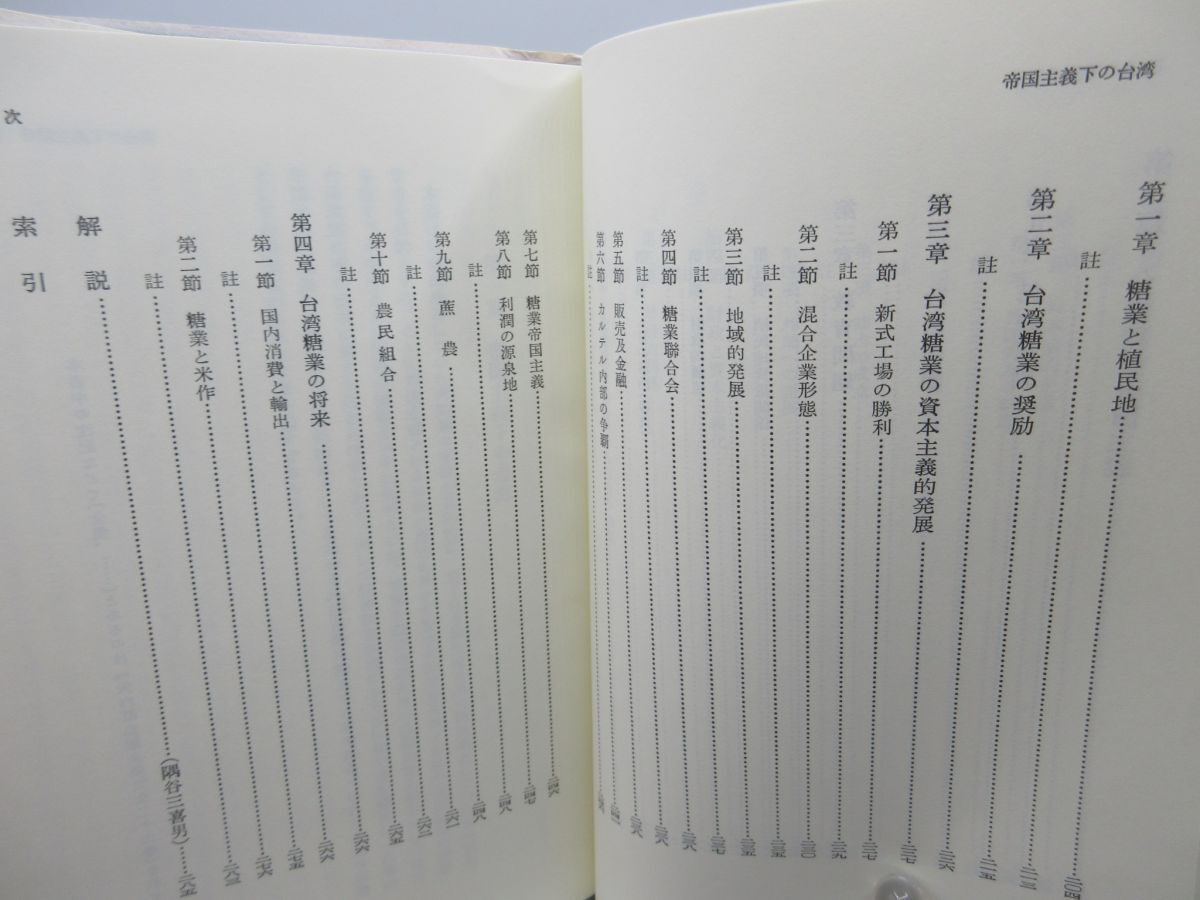 帝国主義下の台湾
第一章　糖業と植民地……二〇四
註……
第二章　台湾糖業の奨励……二一三
註……二一五
第三章　台湾糖業の資本主義的発展……
第一節　新式工場の勝利……
註……
第二節　混合企業形態……二三〇
註……
第三節　地域的発展……
註……
第四節　糖業聯合会……
註……
第五節　販売及金融……
第六節　カルテル内部の争覇……
註……
次
第七節　糖業帝国主義……二四六
第八節　利潤の源泉地……二四七
註……二四八
第九節　蔗農……二四八
註……二六一
第十節　農民組合……
註……二六五
第四章　台湾糖業の将来……二六六
第一節　国内消費と輸出……
註……二七五
第二節　糖業と米作……二七六
註……二八三
解説……（隅谷三喜男）……二八五
索引